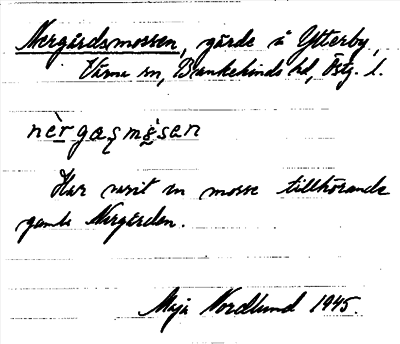 Nergårdsmossen, gärde å Ytterby,
Värna sn, Bankekinds hd, Östg. l.
nèr gaʂ mɔ̀san
Har varit en mosse tillhörande
gamla Nergården.
Maja Nordlund 1945.